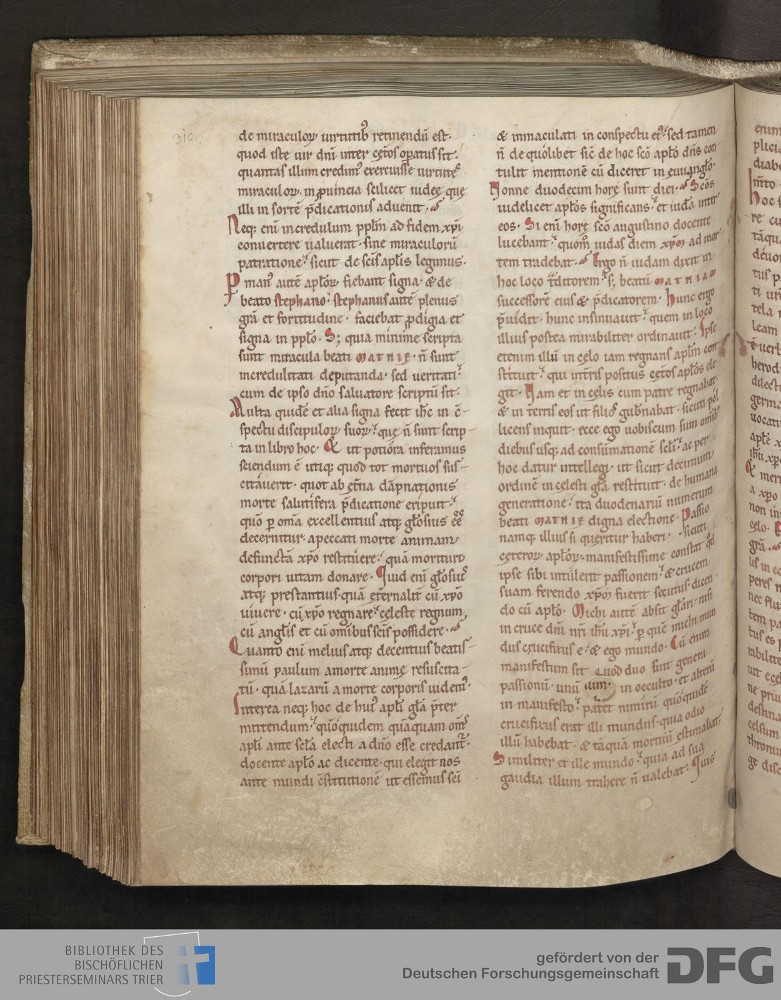 310
de miraculoꝝ· uirtutib; retinendū est·
quod iste uir dn̄i inter cęt̄os op̄atus sit·
quantas illum credim᷒ exercuisse uirtute᷒
miraculoꝝ· in ꝓuincia scilicet iudeę quę
illi in sorte p̄dicationis aduenit·
Neq; eni incredulum ppl̄m ad fidem xp̄i
conuertere ualuerat· sine miraculorū
patratione· sicut de sc̄is apl̄is legimus·
P man᷒ autē apl̄oꝝ· fiebant signa· & de
beato stephano· stephanus autē plenus
grā et fortitudine· faciebat ꝓdigia et
signa in ppl̄o· S; quia minime scripta
sunt miracula beati MATHIĘ· n̄ sunt
incredulitati deputanda· sed ueritati·
cum de ipso dn̄o saluatore scriptū sit·
Multa quidē et alia signa fecit ih̄c in c̄-
spectu discipuloꝝ suoꝝ· quę n̄ sunt scrip-
ta in libro hoc· Et ut potiora inferamus
sciendum ē utiq; quod tot mortuos sus-
citauerit· quot ab ęt̄na dāpnationis
morte salutifera p̄dicatione eripuit·
quo ꝑ om̄a excellentius atq; gl̄osius ēē
decernitur· a peccati morte animam
defunctā xp̄o restituere· quā morituro
corpori uitam donare· Quid eni gl̄osius
atq; prestantius· quā ęternalit̄ cū xp̄o
uiuere· cū xp̄o regnare· celeste regnum,
cū angl̄is et cū om̄ibus sc̄is possidere·
Quanto eni melius atq; decentius beatis-
simū paulum a morte animę resuscita-
tū· quā lazarū a morte corporis uidem᷒
Interea neq; hoc de hui᷒ apl̄i gl̄a p̄ter
mittendum· quoquidem quāquam om̄s
apl̄i ante sc̄la electi a dn̄o esse credant᷑·
docente apl̄o ac dicente· qui elegit nos
ante mundi c̄stitutionē ut essemus sc̄i
& inmaculati in conspectu ei᷒· sed tamen
n̄ de quolibet sic̄ de hoc sc̄o apl̄o dn̄s con
tulit mentionē cū diceret in euuanglō·
Nonne duodecim horę sunt diei· Sc̄os
uidelicet apl̄os significans· et iudā inter
eos· Si eni horę sc̄o augustino docente
lucebant· quom̄ iudas diem xp̄m ad mor
tem tradebat· Ergo n̄ iudam dixit in
hoc loco t̄ditorem· s; beatū MATHIAM
successorē eius & p̄dicatorem· Hunc ergo
p̄uidit· hunc insinuauit· quem in loco
illius postea mirabiliter ordinauit· Ipse
etenim illū in cęlo iam regnans apl̄m con
stituit· qui int̄ris positus cęt̄os apl̄os ele
git· Nam et in cęlis cum patre regnabat·
& in terris eos ut filios gub̄nabat· sicuti pol
licens inquit· ecce ego uobiscum sum omib;
diebus usq; ad consūmationē sc̄li· ac per
hoc datur intellegi· ut sicut decimum
ordinē in cęlesti gl̄a restituit· de humana
generatione· ita duodenariū numerum
beati MATHIĘ digna electione· Passio
namq; illius si queritur haberi· sicuti
cęterorꝝ apl̄oꝝ· manifestissime constat qd̄
ipse sibi intulerit passionem· & crucem
suam ferendo xp̄m fuerit secutus dicen
do cū apl̄o· Michi autē absit gl̄ari· nisi
in cruce dn̄i nr̄i ih̄u xp̄i· ꝑ quē michi mun
dus crucifixus ē· & ego mundo· Cū enim
manifestum sit quod duo sint genera
passionū· unū uim· in occulto· et alterū
in manifesto· patet nimirū quoquidē
crucifixus erat illi mundus· quia odio
illū habebat· & tāquā mortuū estimabat·
Similiter et ille mundo· quia ad sua
gaudia illum trahere n̄ ualebat· Quis
BIBLIOTHEK DES
BISCHÖFLICHEN
PRIESTERSEMINARS TRIER
gefördert von der
Deutschen Forschungsgemeinschaft
DFG